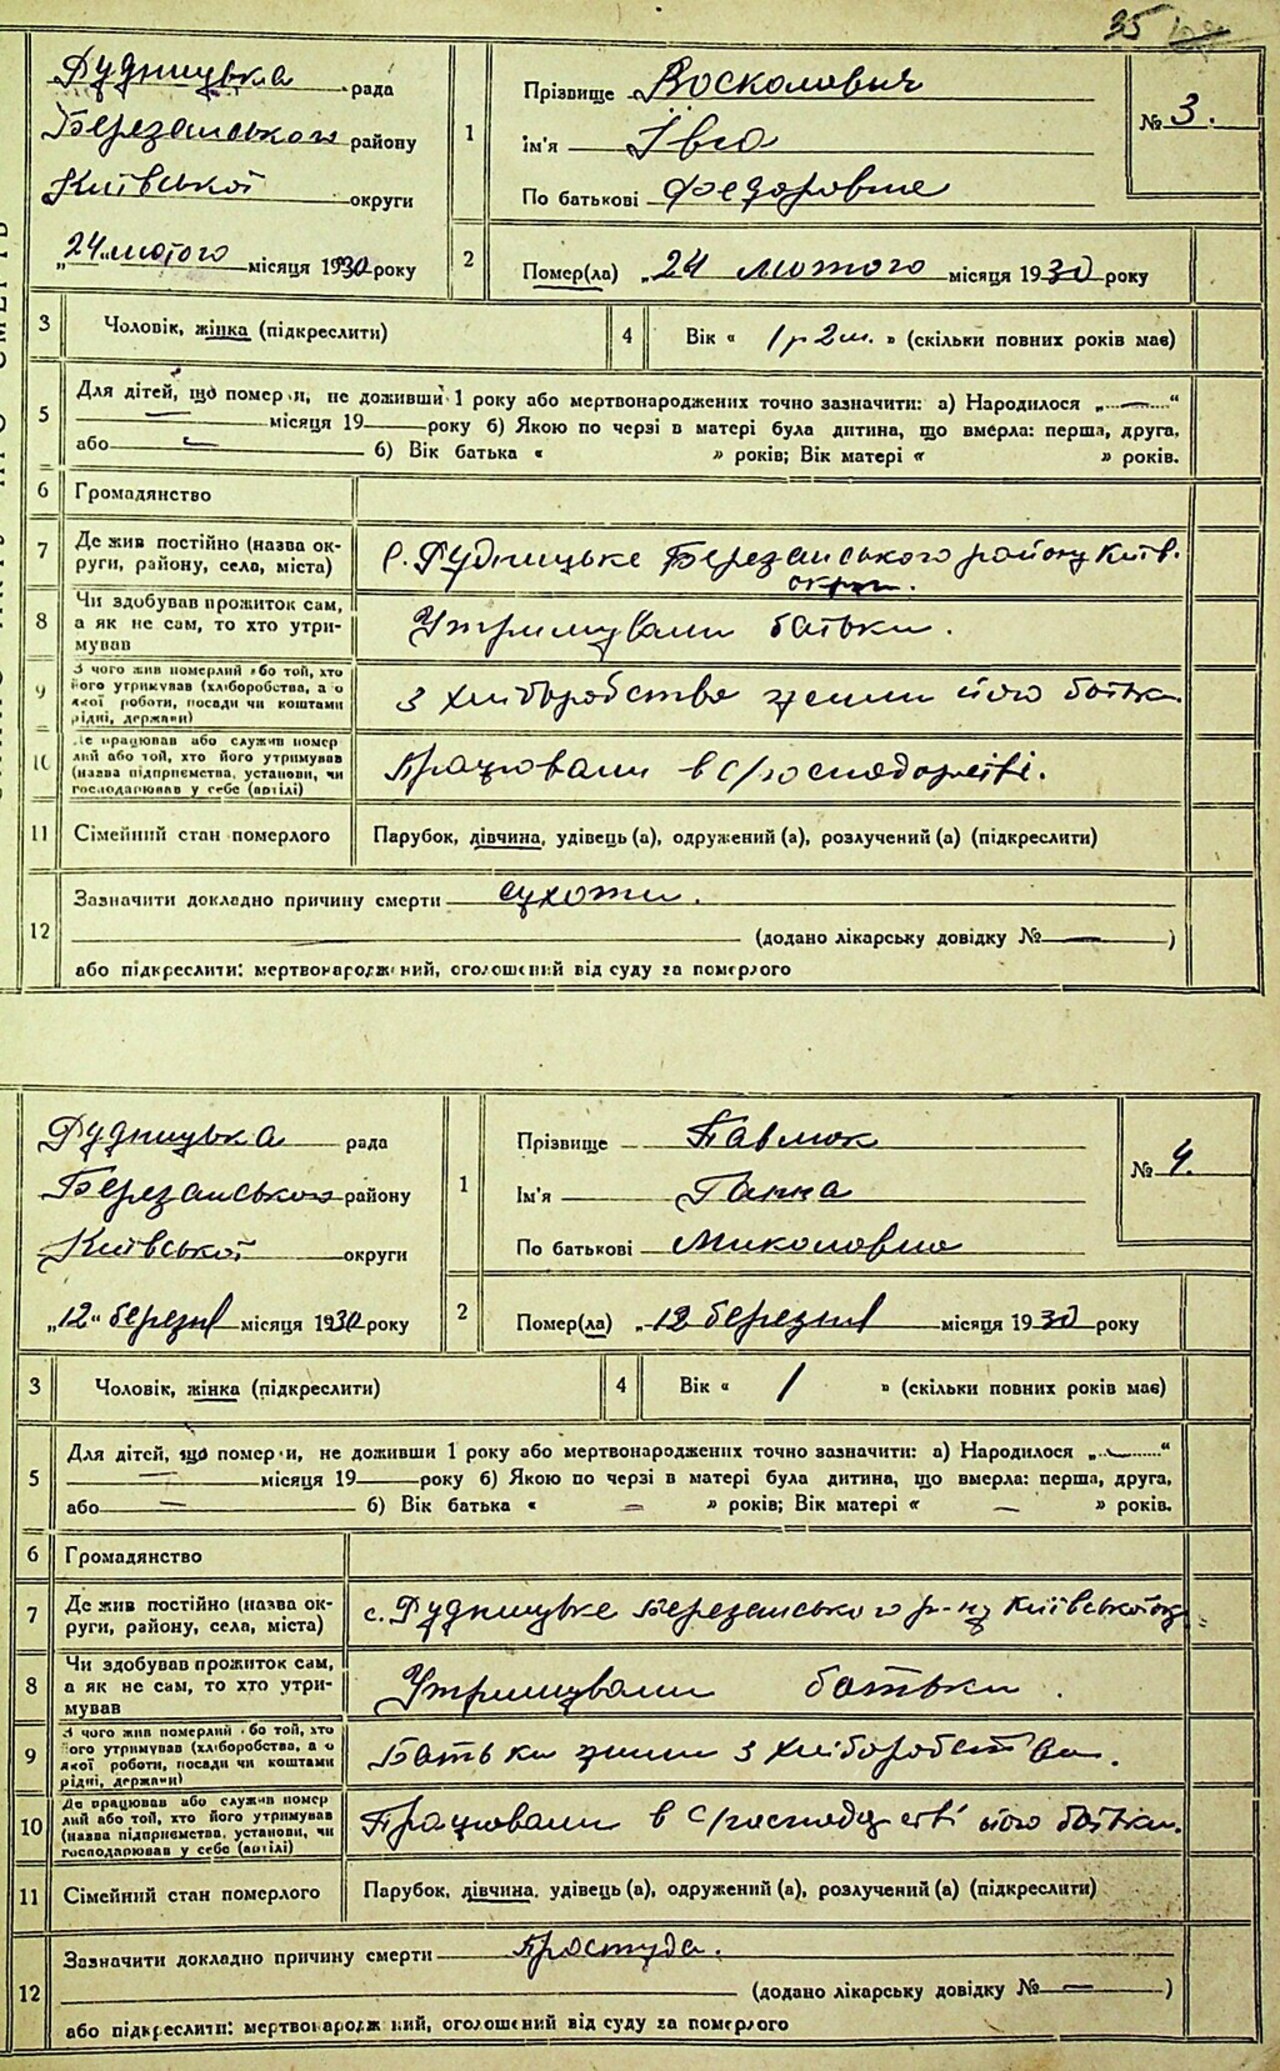 35
Рудницька рада
Березанського району
Київської округи
„24" лютого місяця 1930 року
1
Прізвище Восколович
ім'я Їва
По батькові Федоровна
№ 3.
2
Помер(ла) „24 лютого місяця 1930 року
3 Чоловік, жінка (підкреслити)
4 Вік « 1 р 2 м. » (скільки повних років має)
5
Для дітей, що померли, не доживши 1 року або мертвонароджених точно зазначити: а) Народилося „—“
— місяця 19— року б) Якою по черзі в матері була дитина, що вмерла: перша, друга,
або — б) Вік батька « » років; Вік матері « » років.
6 Громадянство
7 Де жив постійно (назва округи, району, села, міста)
с. Рудницьке Березанського району Київ.
окри.
8 Чи здобував прожиток сам,
а як не сам, то хто утри-
мував
Утримували батьки.
9 З чого жив померлий або той, хто
його утримував (хліборобства, а о
якої роботи, посади чи коштами
рідні, держави)
З хліборобства жили його батьки.
10 Де працював або служив помер
лий або той, хто його утримував
(назва підприємства, установи, чи
господарював у себе (артілі)
Працювали в с/господарстві.
11 Сімейний стан померлого
Парубок, дівчина, удівець (а), одружений (а), розлучений (а) (підкреслити)
12
Зазначити докладно причину смерти сухоти.
(додано лікарську довідку №—)
або підкреслити: мертвонароджений, оголошений від суду за померлого
Рудницька рада
Березанського району
Київської округи
„12" березня місяця 1930 року
1
Прізвище Павлюк
Ім'я Ганна
По батькові Миколовна
№ 4.
2
Помер(ла) „12 березня місяця 1930 року
3 Чоловік, жінка (підкреслити)
4 Вік « 1 » (скільки повних років має)
5
Для дітей, що померли, не доживши 1 року або мертвонароджених точно зазначити: а) Народилося „—“
— місяця 19— року б) Якою по черзі в матері була дитина, що вмерла: перша, друга,
або — б) Вік батька « — » років; Вік матері « — » років.
6 Громадянство
7 Де жив постійно (назва округи, району, села, міста)
с. Рудницьке Березанського р-ну Київської ок
8 Чи здобував прожиток сам,
а як не сам, то хто утри-
мував
Утримували батьки.
9 З чого жив померлий або той, хто
його утримував (хліборобства, а о
якої роботи, посади чи коштами
рідні, держави)
Батьки жили з хліборобства.
10 Де працював або служив помер
лий або той, хто його утримував
(назва підприємства, установи, чи
господарював у себе (артілі)
Працювали в с/господарстві його батьки.
11 Сімейний стан померлого
Парубок, дівчина, удівець (а), одружений (а), розлучений (а) (підкреслити)
12
Зазначити докладно причину смерти Простуда.
(додано лікарську довідку №—)
або підкреслити: мертвонароджений, оголошений від суду за померлого